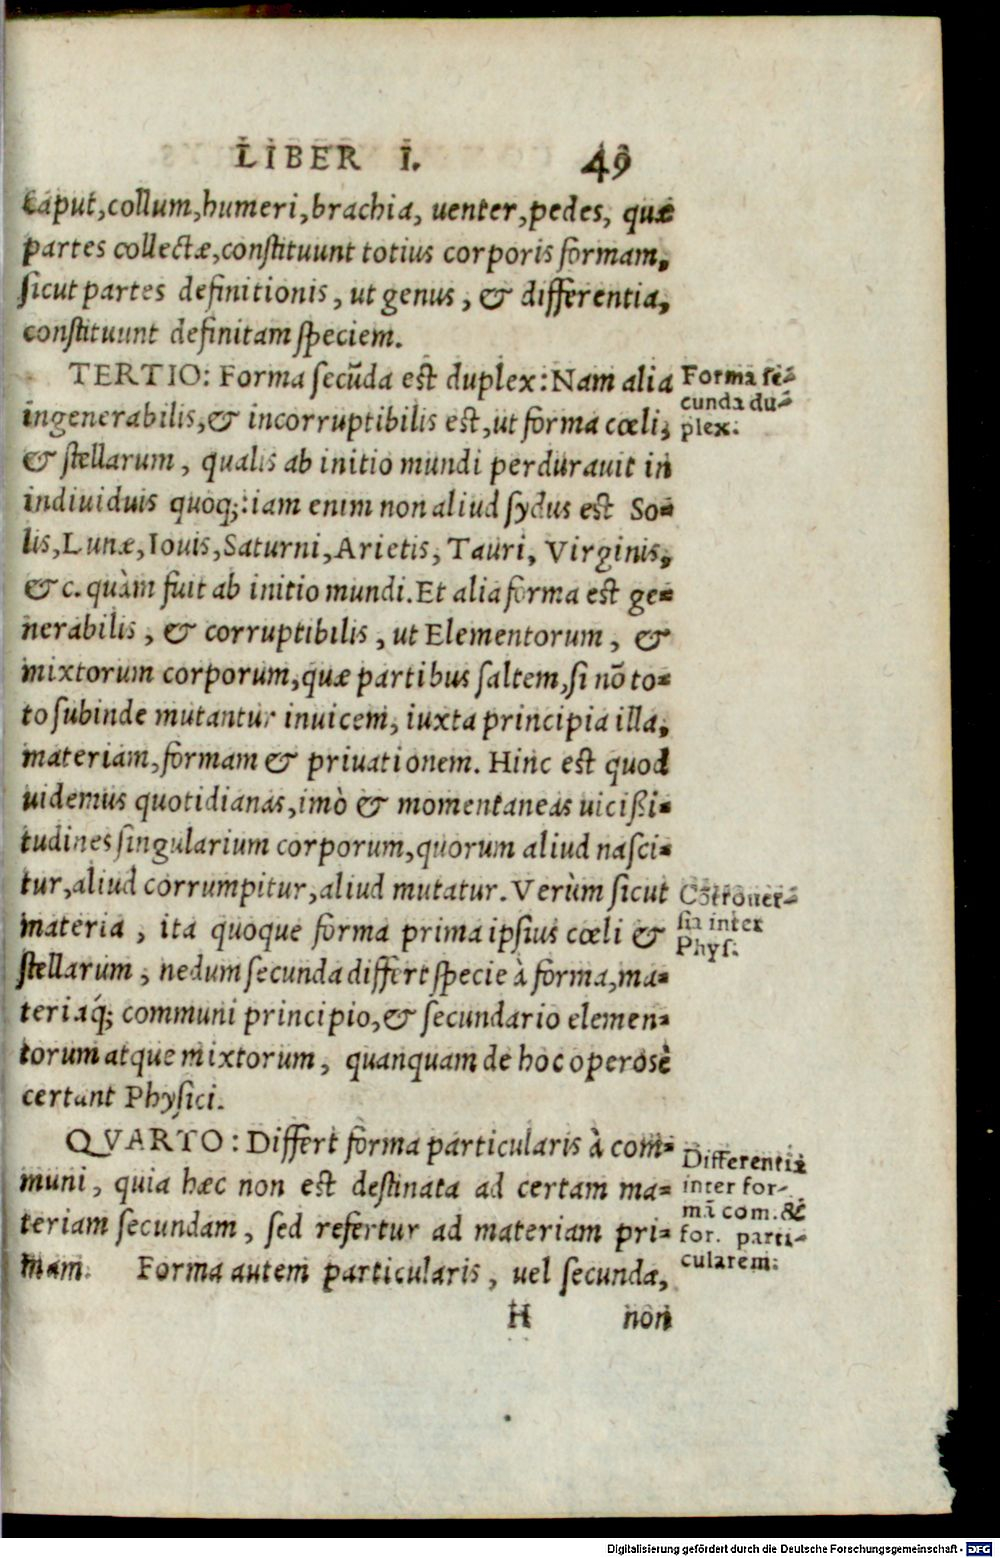 LIBER I. 49
caput, collum, humeri, brachia, uenter, pedes, quæ
partes collectæ, constituunt totius corporis formam,
sicut partes definitionis, ut genus, & differentia,
constituunt definitam speciem.
TERTIO: Forma secūda est duplex: Nam alia
ingenerabilis, & incorruptibilis est, ut forma cœli,
& stellarum, qualis ab initio mundi perdurauit in
indiuiduis quoq;: iam enim non aliud sydus est So-
lis, Lunæ, Iouis, Saturni, Arietis, Tauri, Virginis,
& c. quàm fuit ab initio mundi. Et alia forma est ge-
nerabilis, & corruptibilis, ut Elementorum, &
mixtorum corporum, quæ partibus saltem, si nō to-
to subinde mutantur inuicem, iuxta principia illa,
materiam, formam & priuationem. Hinc est quod
uidemus quotidianas, imò & momentaneas uicißi-
tudines singularium corporum, quorum aliud nasci-
tur, aliud corrumpitur, aliud mutatur. Verùm sicut
materia, ita quoque forma prima ipsius cœli &
stellarum, nedum secunda differt specie à forma, ma-
teriaq́; communi principio, & secundario elemen-
torum atque mixtorum, quanquam de hoc operosè
certant Physici.
QVARTO: Differt forma particularis à com-
muni, quia hæc non est destinata ad certam ma-
teriam secundam, sed refertur ad materiam pri-
mam. Forma autem particularis, uel secunda,
H non
Forma se-
cunda du-
plex.
Cōtrouer-
sia inter
Phys.
Differentia
inter for-
mā com. &
for. parti-
cularem.
Digitalisierung gefördert durch die Deutsche Forschungsgemeinschaft - DFG